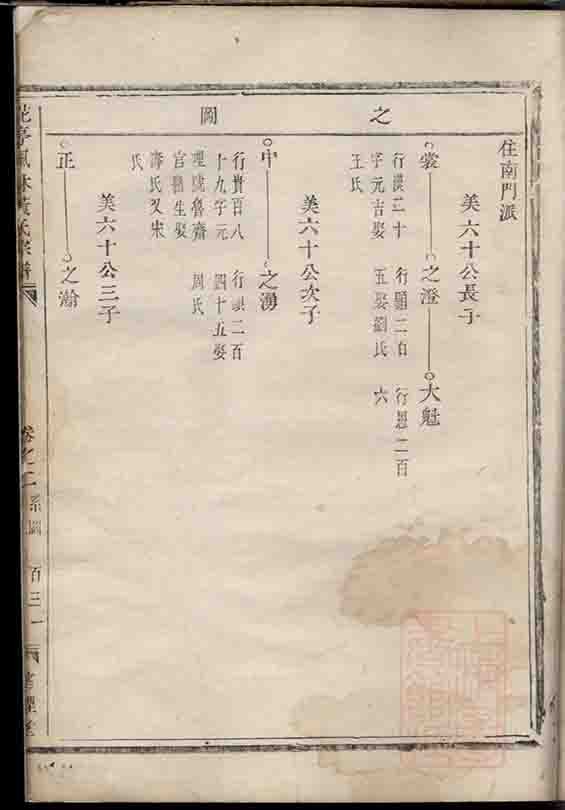 之
圖
住南門派
美六十公長子
裳 之澄 大魁
行漢二十
字元吉娶
王氏
行顯二百
五娶劉氏
行恩二百
六
美六十公次子
中 之湧
行貴百八
十九字元
理號魯齋
官醫生娶
蔣氏又朱
氏
行順二百
四十五娶
周氏
美六十公三子
正 之瀚
氏宗譜
卷之二 系圖 百三一